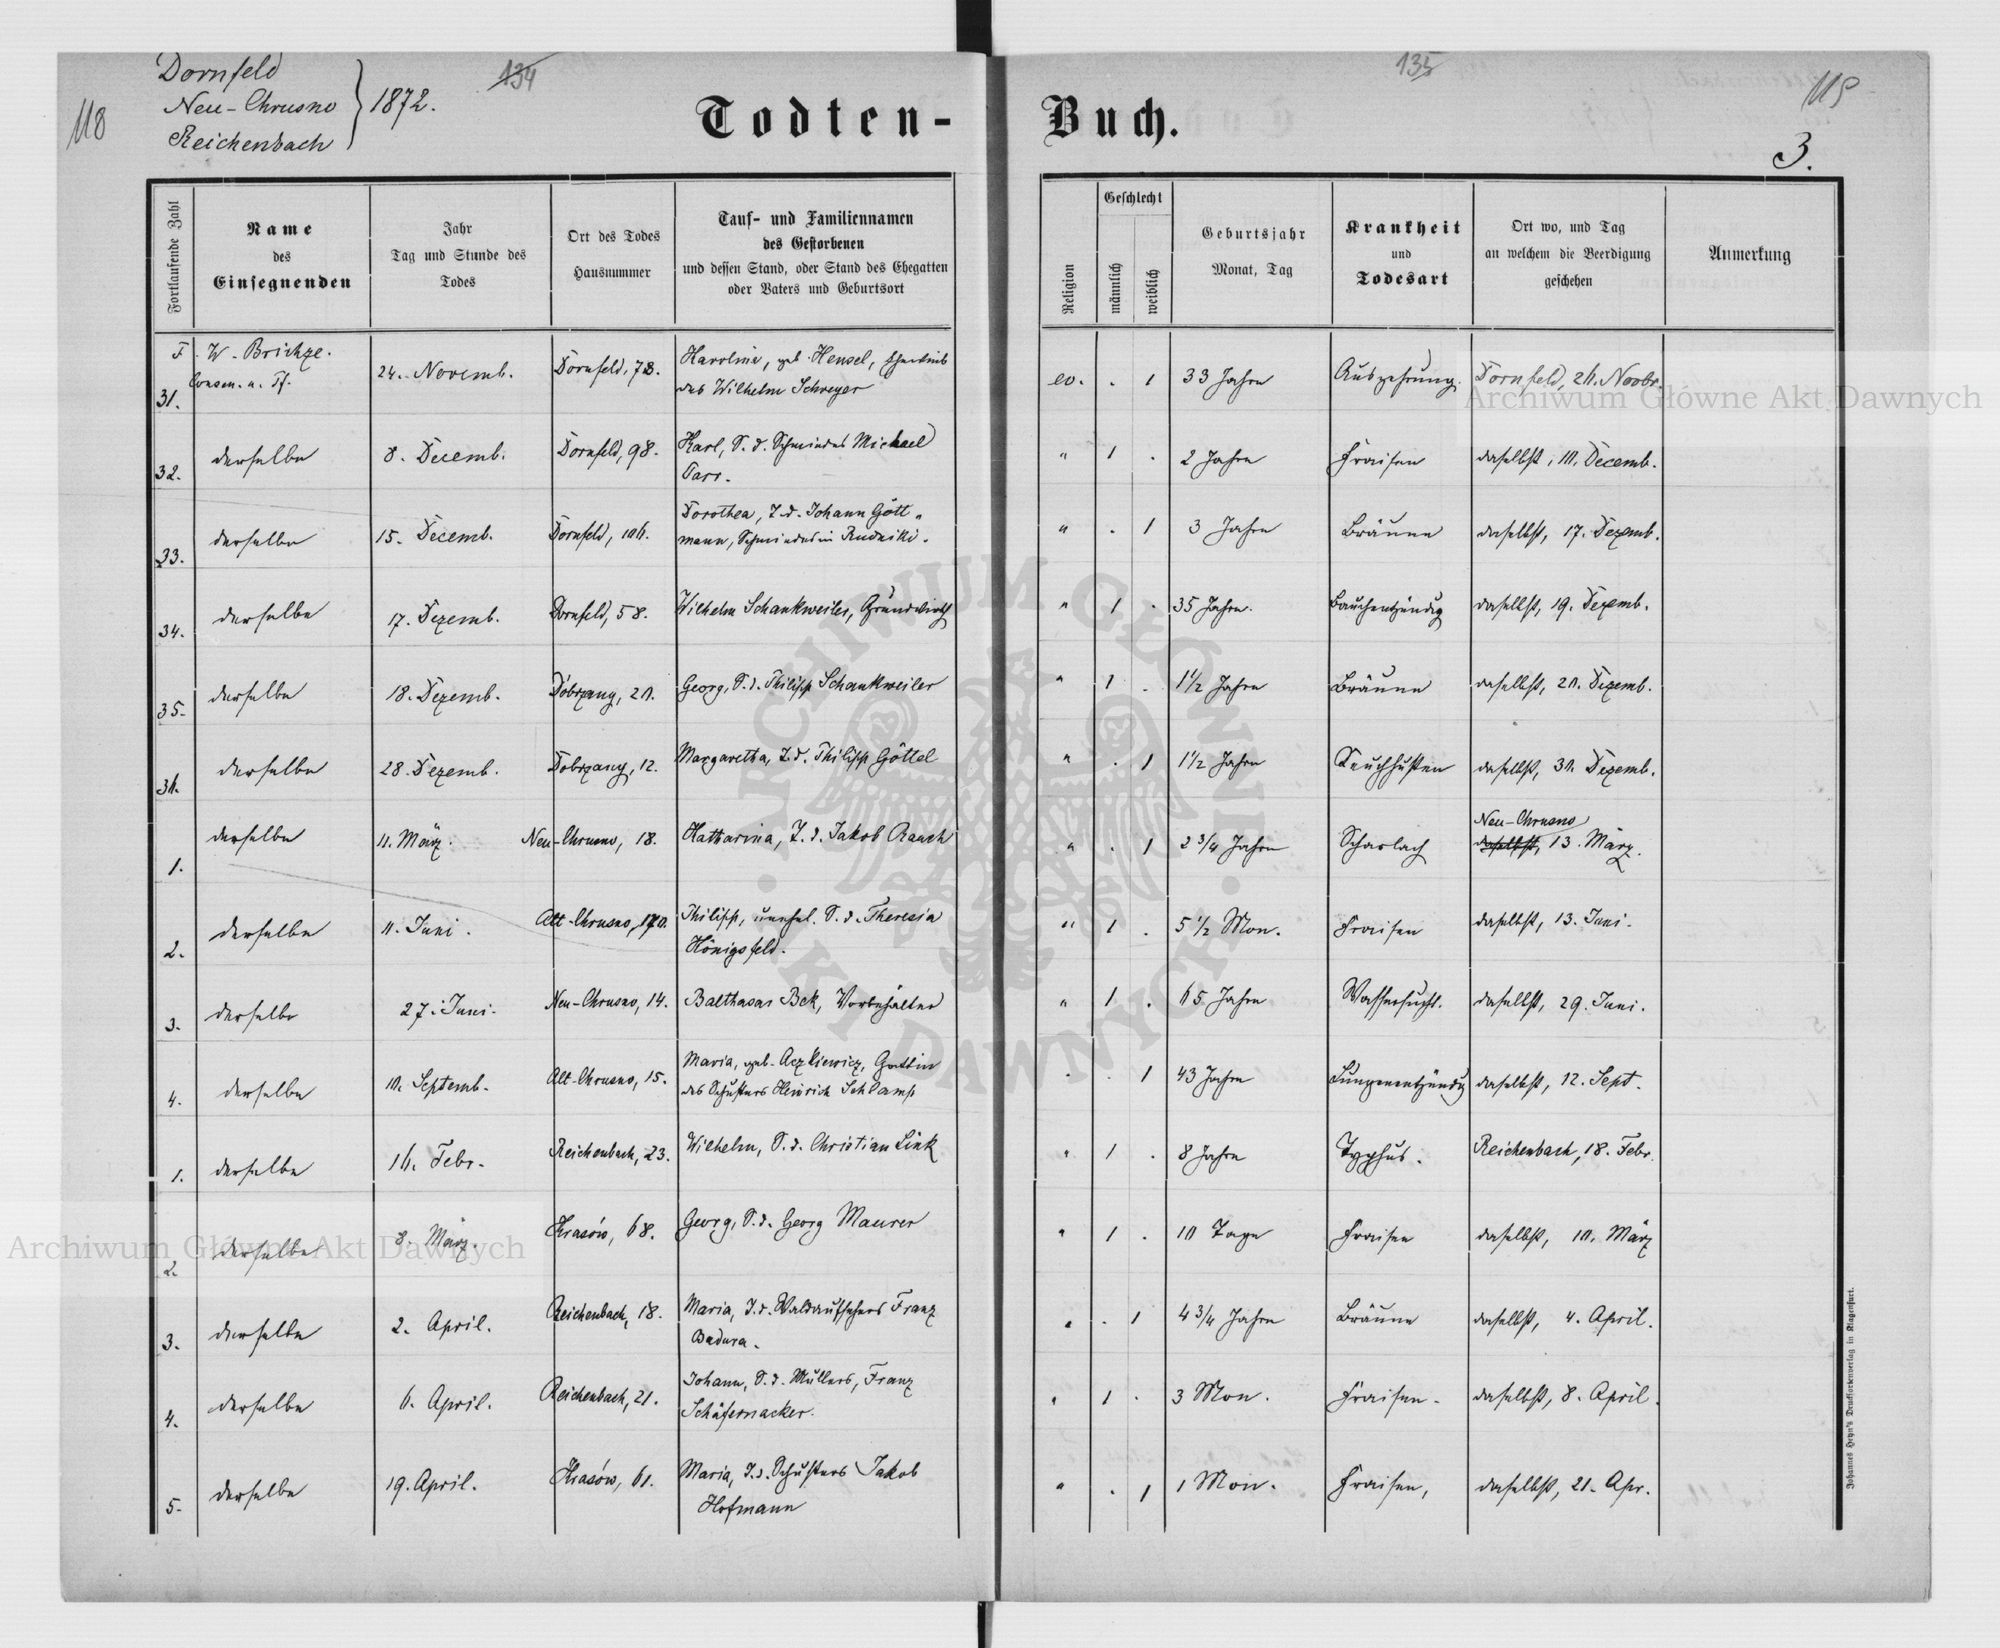 Dornfeld
Neu-Chrusno
Reichenbach
1872.
134
118
135
119
3.
Todten-Buch.
Fortlaufende Zahl
Name
des
Einsegnenden
Jahr
Tag und Stunde des
Todes
Ort des Todes
Hausnummer
Tauf- und Familiennamen
des Gestorbenen
und dessen Stand, oder Stand des Ehegatten
oder Vaters und Geburtsort
Religion
Geschlecht
männlich
weiblich
Geburtsjahr
Monat, Tag
Krankheit
und
Todesart
Ort wo, und Tag
an welchem die Beerdigung
geschehen
Anmerkung
31. F. W. Brichze. 24. Novemb. Dornfeld, 78. Karolina, geb. Hensel,
des Wilhelm Schreyer
ev. . 1 33 Jahre Auszehrung. Dornfeld, 26. Novbr.
32. derselbe 8. Decemb. Dornfeld, 98. Karl, S. d. Schmiedes Michael
Parr.
" 1 . 2 Jahre Fraisen daselbst, 10. Decemb.
33. derselbe 15. Decemb. Dornfeld, 106. Dorothea, T. d. Johann Gött-
mann, Schmiedes in Rudniki.
" . 1 3 Jahre Bräune daselbst, 17. Dezemb.
34. derselbe 17. Dezemb. Dornfeld, 58. Wilhelm Schankweiler, Grundwirth
" 1 . 35 Jahre. Bauchentzündg daselbst, 19. Dezemb.
35. derselbe 18. Dezemb. Dobrzany, 20. Georg, S. d. Philipp Schankweiler
" 1 . 1 1/2 Jahre Bräune daselbst, 20. Dezemb.
36. derselbe 28. Dezemb. Dobrzany, 12. Margaretha, T. d. Philipp Göttel
" . 1 1 1/2 Jahre Keuchhusten daselbst, 30. Dezemb.
1. derselbe 11. März. Neu-Chrusno, 18. Katharina, T. d. Jakob Rauch
" . 1 2 3/4 Jahre Scharlach Neu-Chrusno
daselbst, 13. März.
2. derselbe 11. Juni. Alt-Chrusno, Philipp, unehel. S. d. Theresia
Königsfeld.
" 1 . 5 1/2 Mon. Fraisen daselbst, 13. Juni.
3. derselbe 27. Juni. Neu-Chrusno, 14. Balthasar Bek, Vorbehälter
" 1 . 65 Jahre Wassersucht. daselbst, 29. Juni.
4. derselbe 10. Septemb. Alt-Chrusno, 15. Maria, geb. Aczkiewicz, Gattin
des Schusters Heinrich Schlamp
" . 1 43 Jahre Lungenentzündg daselbst, 12. Sept.
1. derselbe 16. Febr. Reichenbach, 23. Wilhelm, S. d. Christian Link
" 1 . 8 Jahre Typhus. Reichenbach, 18. Febr.
2. derselbe 8. März. Krasów, 68. Georg, S. d. Georg Maurer
" 1 . 10 Tage Fraisen daselbst, 10. März
3. derselbe 2. April. Reichenbach, 18. Maria, T. d. Waldaufsehers Franz
Badura.
" . 1 4 3/4 Jahre Bräune daselbst, 4. April.
4. derselbe 6. April. Reichenbach, 21. Johann, S. d. Müllers, Franz
Schäfernacker.
" 1 . 3 Mon. Fraisen. daselbst, 8. April.
5. derselbe 19. April. Krasów, 61. Maria, T. d. Schusters Jakob
Hofmann
" . 1 1 Mon. Fraisen, daselbst, 21. Apr.
Johannes Heyn's Drucksortenverlag in Klagenfurt.
Archiwum Główne Akt Dawnych
Archiwum Główne Akt Dawnych
ARCHIWUM GŁÓWNE
AKT DAWNYCH